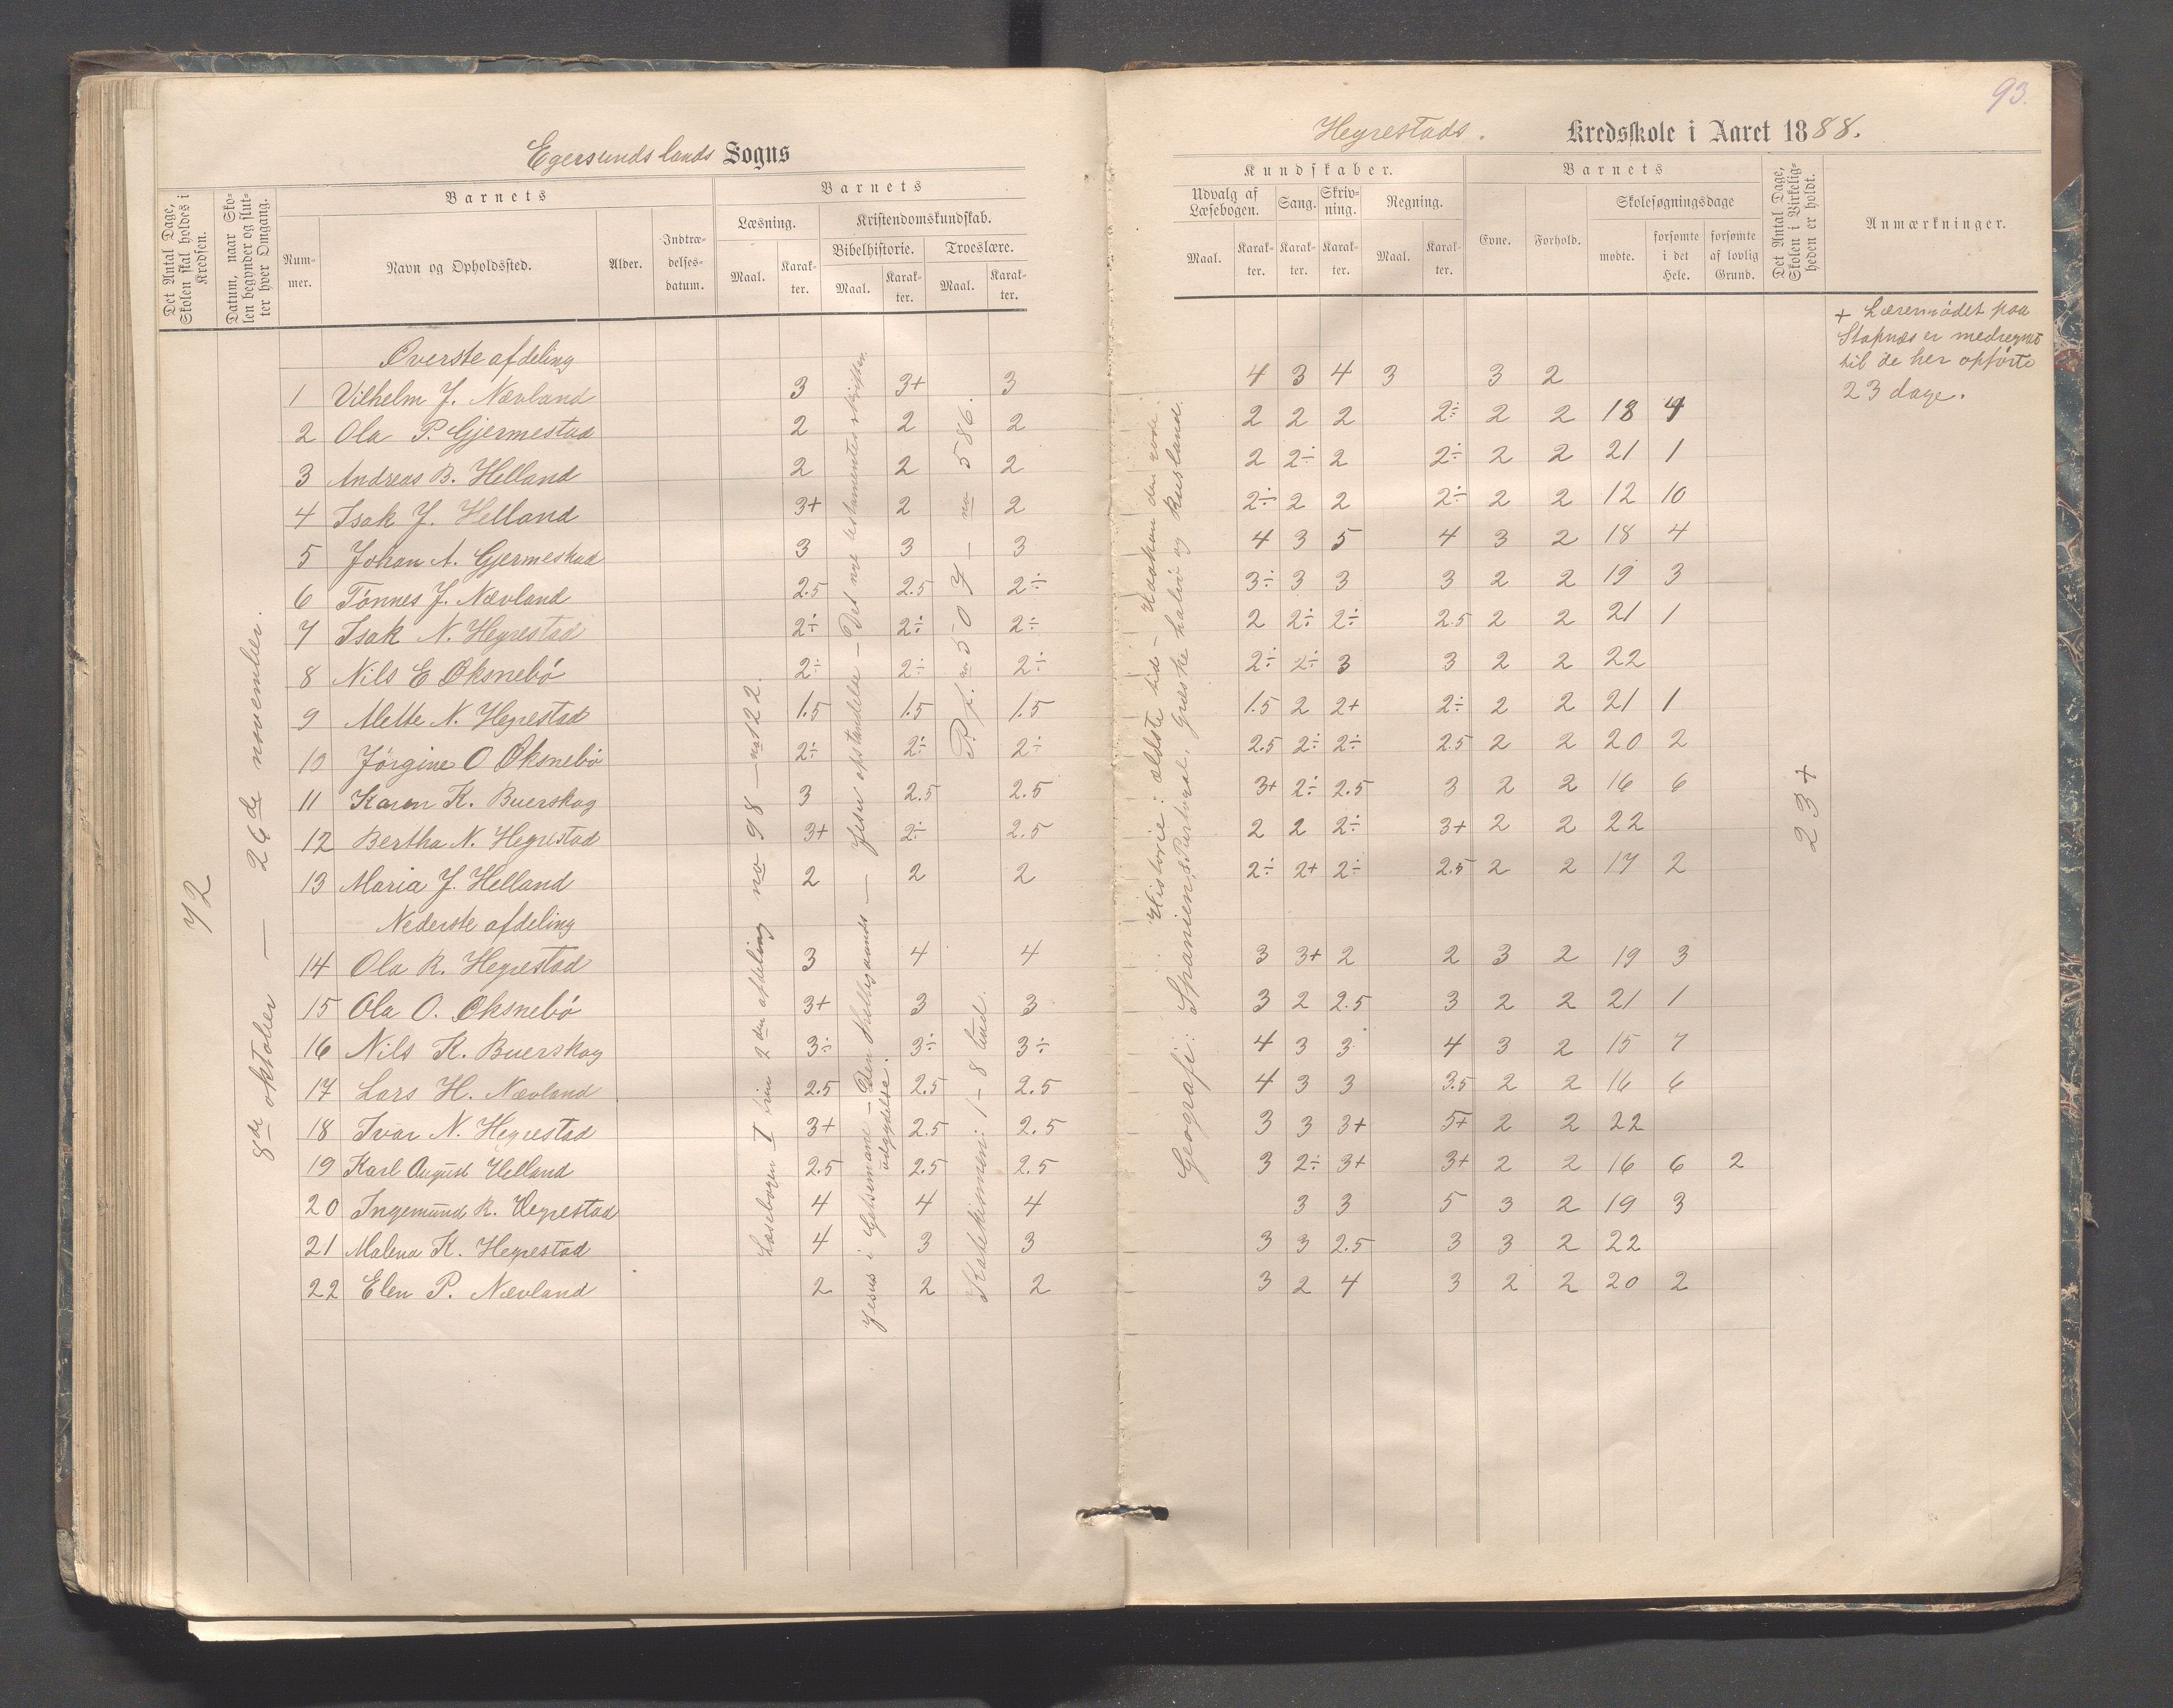 93.
Egersundslands Sogns
Det Antal Dage, Skolen skal holdes i Kredsen.
Datum, naar Skolen begynder og slutter hver Omgang.
Barnets
Nummer.
Navn og Opholdssted.
Alder.
Indtrædelsesdatum.
Barnets
Læsning.
Maal.
Karakter.
Kristendomskundskab.
Bibelhistorie.
Maal.
Karakter.
Troeslære.
Maal.
Karakter.
72
8de oktober — 26de november.
Læsebogen I trin 2den afdeling no 98 — no 122.
Jesus i Getsemane — Den Helligaands udgydelse.
Jesu opstandelse — Det nye testamentes skrifter.
Katekismen: 1–8 bud.
P. f. no 507 – no 586.
Øverste afdeling
1 Vilhelm J. Nævland 3 3+ 3
2 Ola P. Gjermestad 2 2 2
3 Andreas B. Helland 2 2 2
4 Isak J. Helland 3+ 2 2
5 Johan A. Gjermestad 3 3 3
6 Tønnes J. Nævland 2.5 2.5 2÷
7 Isak N. Hegrestad 2÷ 2÷ 2÷
8 Nils E Øksnebø 2÷ 2÷ 2÷
9 Mette N. Hegrestad 1.5 1.5 1.5
10 Jørgine O Øksnebø 2÷ 2÷ 2÷
11 Karen K. Buerskog 3 2.5 2.5
12 Bertha N. Hegrestad 3+ 2÷ 2.5
13 Maria J. Helland 2 2 2
Nederste afdeling
14 Ola R. Hegrestad 3 4 4
15 Ola O. Øksnebø 3+ 3 3
16 Nils K. Buerskog 3÷ 3÷ 3÷
17 Lars H. Nævland 2.5 2.5 2.5
18 Ivar N. Hegrestad 3+ 2.5 2.5
19 Karl August Helland 2.5 2.5 2.5
20 Ingemund R. Hegrestad 4 4 4
21 Malena K. Hegrestad 4 3 3
22 Elen P. Nævland 2 2 2
Hegrestads. Kredsskole i Aaret 1888.
Kundskaber.
Udvalg af Læsebogen.
Maal.
Karakter.
Sang.
Karakter.
Skrivning.
Karakter.
Regning.
Maal.
Karakter.
Barnets
Evne.
Forhold.
Skolesøgningsdage
mødte.
forsømte i det Hele.
forsømte af lovlig Grund.
Det Antal Dage, Skolen i Virkeligheden er holdt.
Anmærkninger.
+ Læremødet paa
Stapnæs er medregnet
til de her opførte
23 dage.
Historie: ældste tid — Haakon den gode.
Geografi: Spanien & Portugal, Græske halvø og Rusland.
23+
4 3 4 3 3 2
2 2 2 2÷ 2 2 18 4
2 2÷ 2 2÷ 2 2 21 1
2÷ 2 2 2÷ 2 2 12 10
4 3 5 4 3 2 18 4
3÷ 3 3 3 2 2 19 3
2 2÷ 2÷ 2.5 2 2 21 1
2÷ 2÷ 3 3 2 2 22
1.5 2 2+ 2÷ 2 2 21 1
2.5 2÷ 2÷ 2.5 2 2 20 2
3+ 2÷ 2.5 3 2 2 16 6
2 2 2÷ 3+ 2 2 22
2÷ 2+ 2÷ 2.5 2 2 17 2
3 3+ 2 2 3 2 19 3
3 2 2.5 3 2 2 21 1
4 3 3 4 3 2 15 7
4 3 3 3.5 2 2 16 6
3 3 3+ 5+ 2 2 22
3 2÷ 3+ 3+ 2 2 16 6 2
3 3 5 3 2 19 3
3 3 2.5 3 3 2 22
3 2 4 3 2 2 20 2